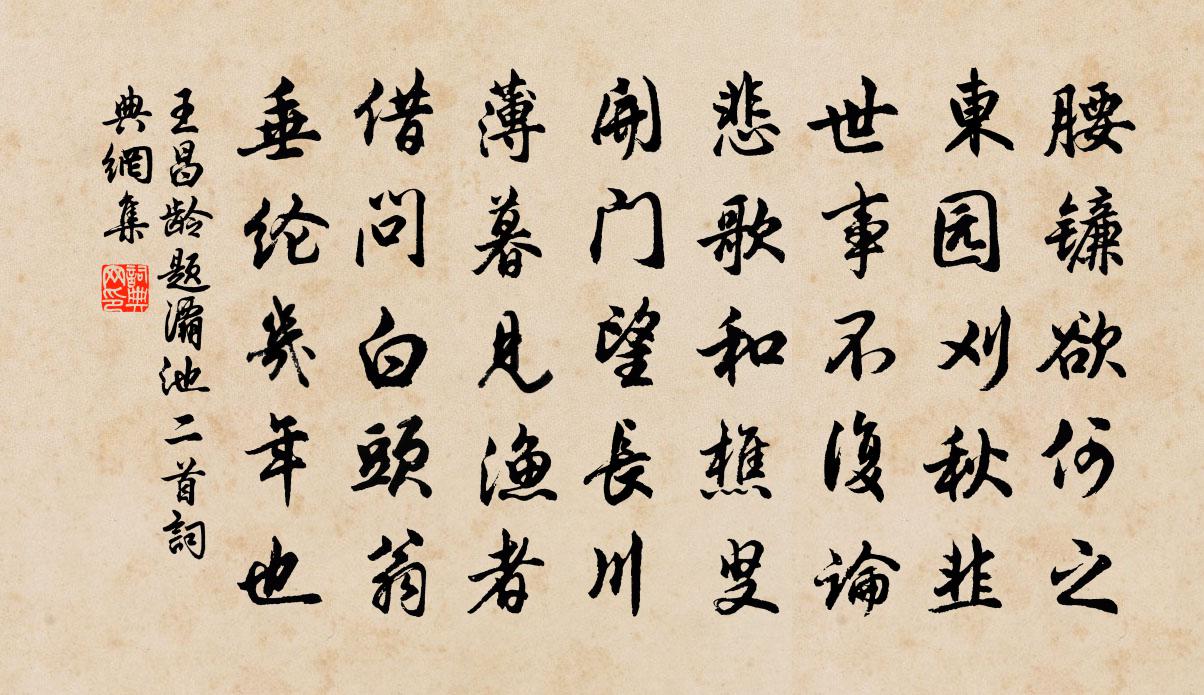 腰镰欲何之
東园刈秋韭
世事不復论
悲歌和樵叟
開门望長川
薄暮見渔者
借问白頭翁
垂纶幾年也
王昌龄题灞池二首詞
典網集
詞典
网印